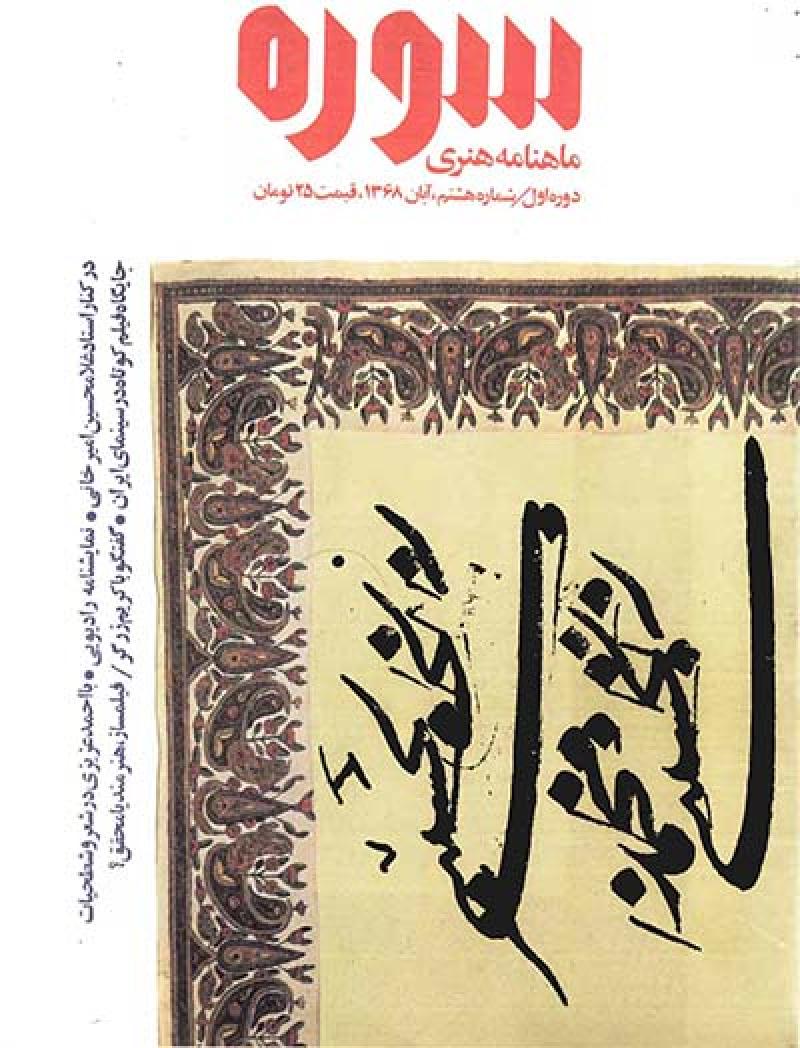 سوره
ماهنامه هنری
دوره اول/شماره هشتم، آبان ۱۳۶۸، قیمت ۲۵ تومان
در کنار استاد غلامحسین امیرخانی * نمایشنامه رادیویی * با احمد عزیزی در شعر و شطحیات
جایگاه فیلم کوتاه در سینمای ایران * گفتگو با کریم زرگر / فیلمساز، هنرمند یا محقق؟